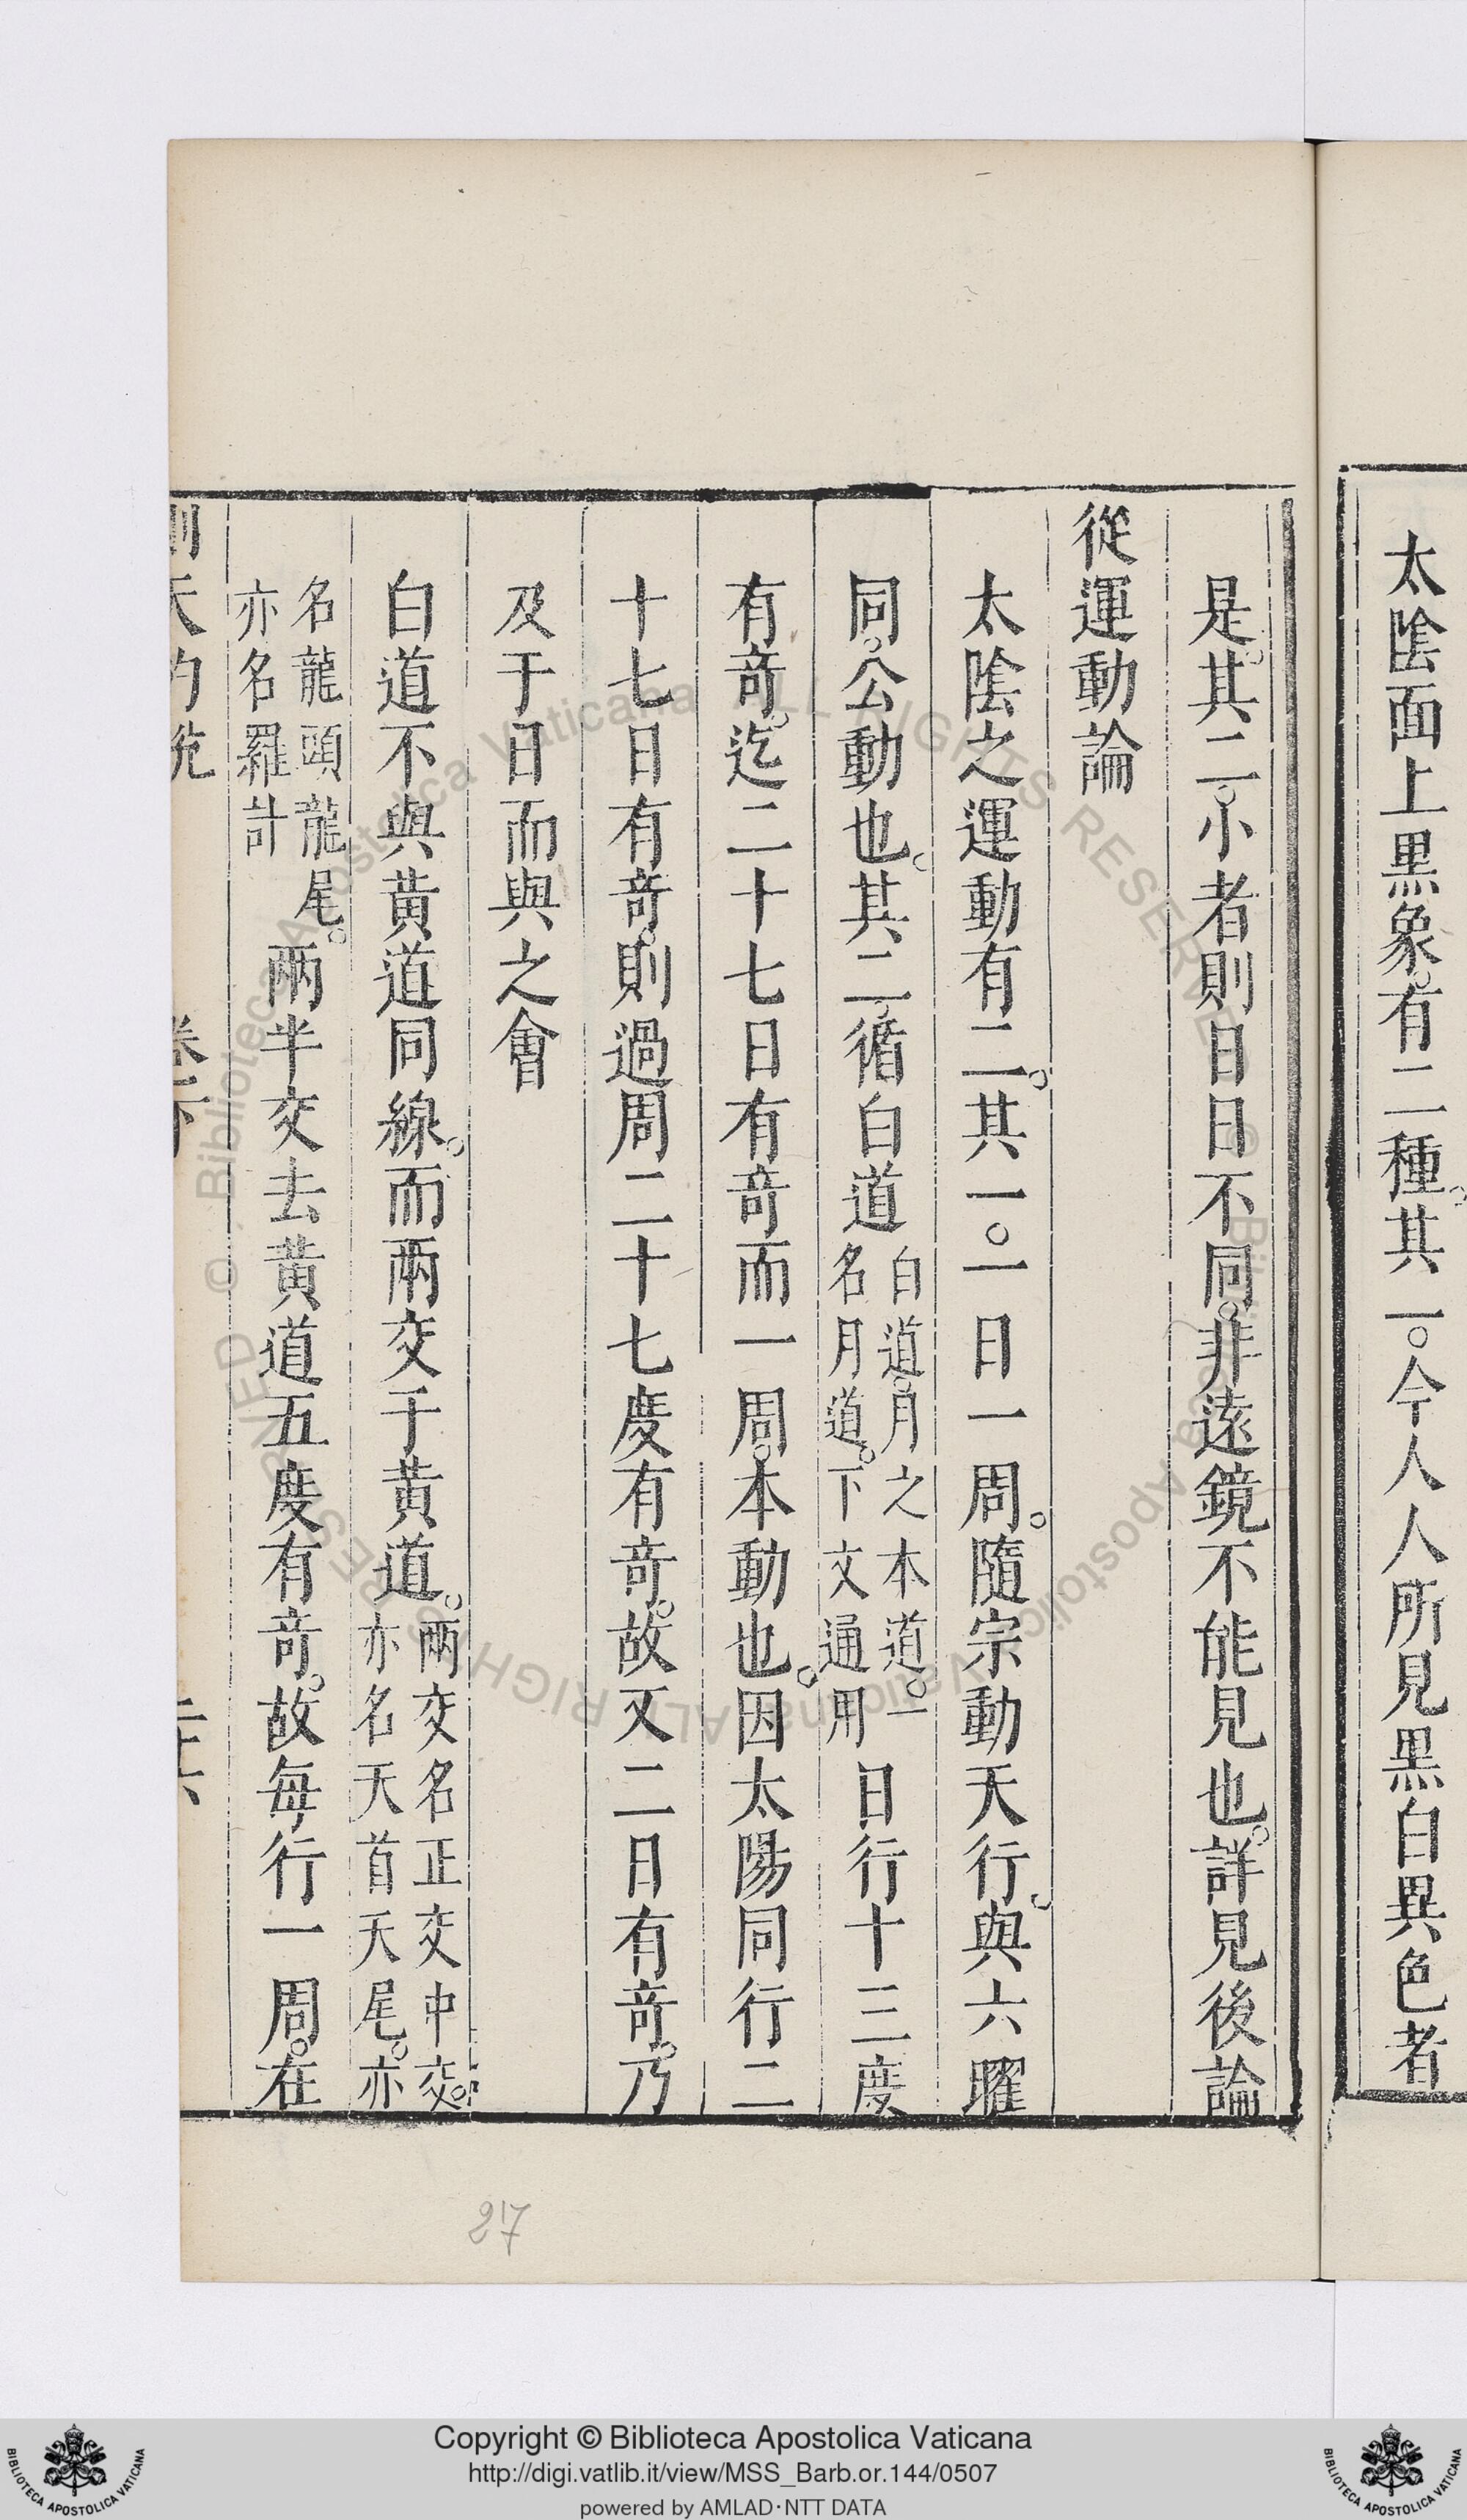 太陰面上黒象。有二種。其一。今人人所見黒白異色者
是。其二。小者則日日不同。非遠鏡不能見也。詳見後論
從運動論
太陰之運動有二。其一。一日一周。隨宗動天行。與六曜
同。公動也。其二。循白道白道。月之本道。一名月道。下文通用日行十三度
有竒。迄二十七日有竒而一周。本動也。因太陽同行二
十七日有竒。則過周二十七度有竒。故又二日有竒。乃
及于日而與之會
白道不與黃道同線。而兩交于黃道。兩交名正交中交。亦名天首天尾。亦
名龍頭龍尾。亦名羅計兩半交去黃道五度有竒。故每行一周。在
測天約說
卷下
二十六
27
Copyright © Biblioteca Apostolica Vaticana
http://digi.vatlib.it/view/MSS_Barb.or.144/0507
powered by AMLAD·NTT DATA
BIBLIOTECA APOSTOLICA VATICANA
BIBLIOTECA APOSTOLICA VATICANA